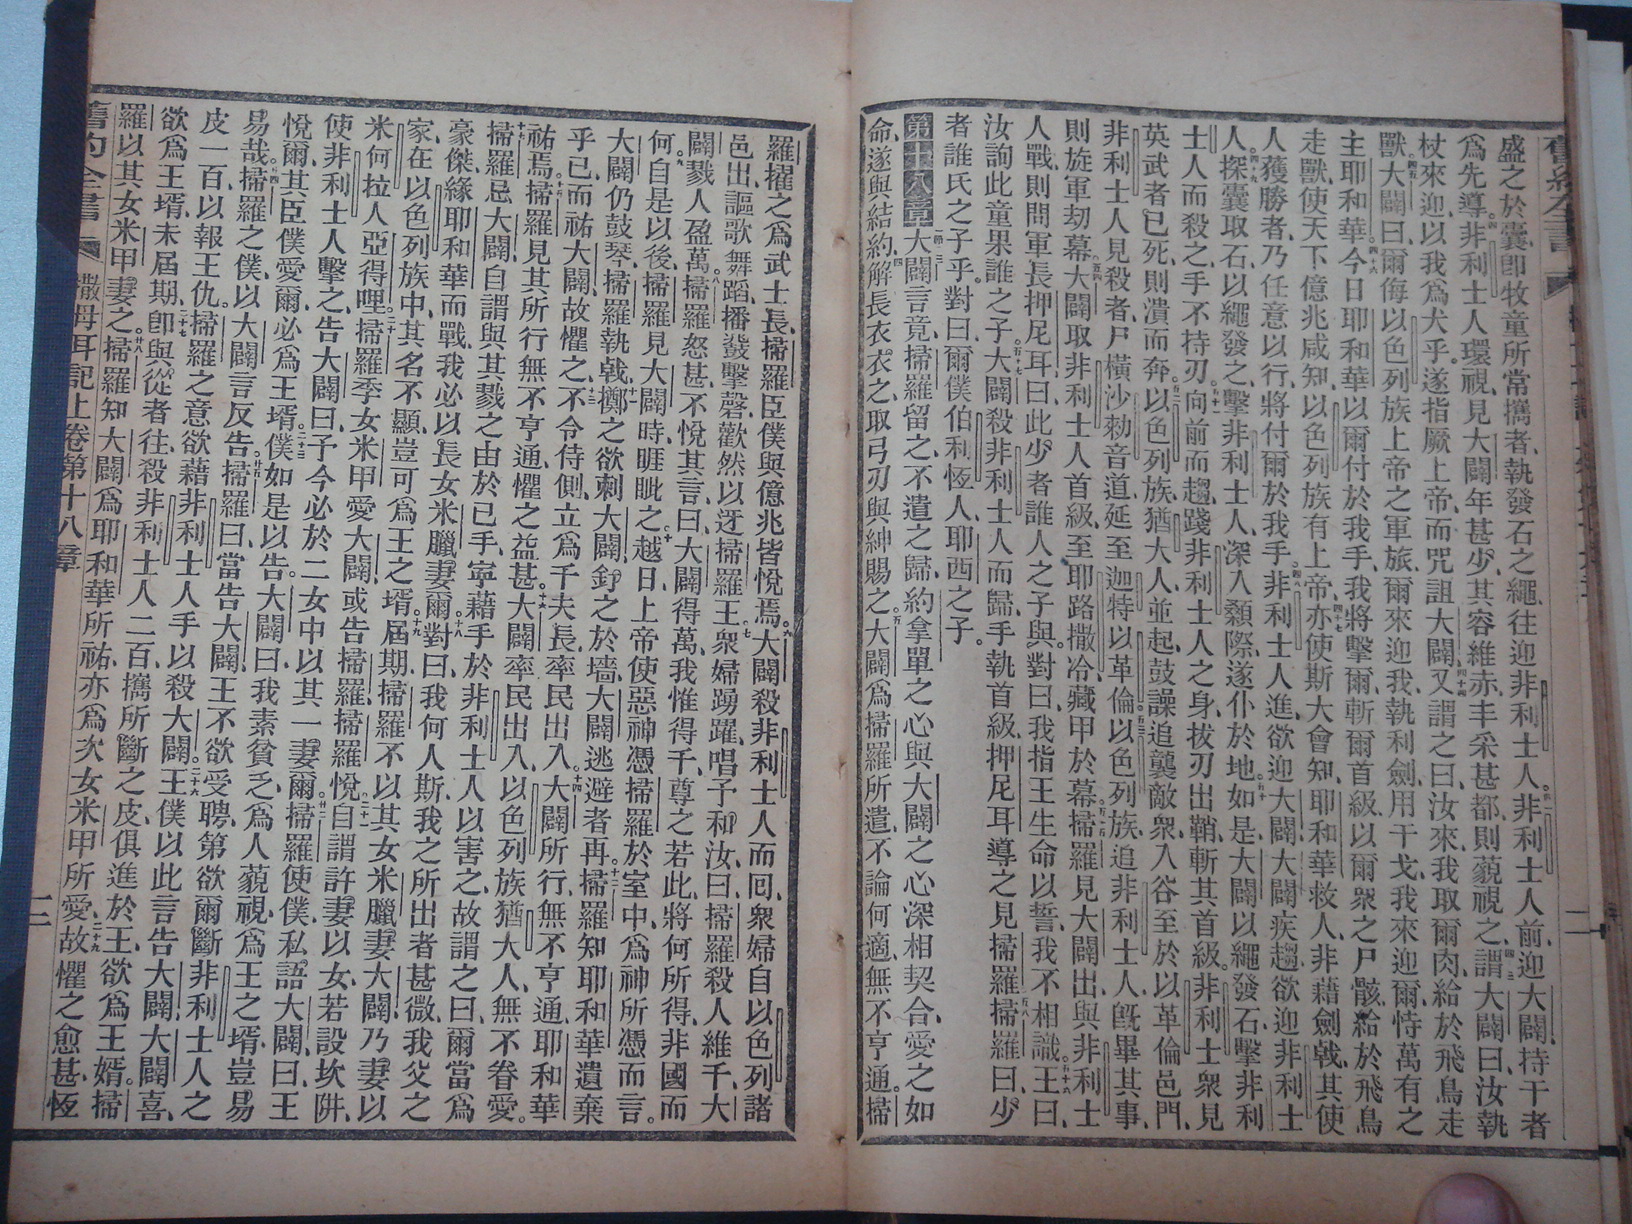 盛之於囊、卽牧童所常攜者、執發石之繩、往迎非利士人。四一非利士人前迎大闢、持干者
爲先導。四二非利士人環視、見大闢年甚少、其容維赤、丰采甚都、則藐視之。四三謂大闢曰、汝執
杖來迎、以我爲犬乎。遂指厥上帝、而咒詛大闢。四十四又謂之曰、汝來、我取爾肉、給於飛鳥走
獸。四五大闢曰、爾侮以色列族上帝之軍旅、爾來迎我、執利劍、用干戈、我來迎爾、恃萬有之
主耶和華。四十六今日耶和華以爾付於我手、我將擊爾、斬爾首級、以爾衆之尸骸、給於飛鳥
走獸、使天下億兆咸知、以色列族有上帝。四十七亦使斯大會知、耶和華救人、非藉劍戟、其使
人獲勝者、乃任意以行、將付爾於我手。四八非利士人進、欲迎大闢、大闢疾趨、欲迎非利士
人。四十九探囊取石、以繩發之、擊非利士人、深入顙際、遂仆於地。五十如是大闢以繩發石、擊非利
士人而殺之、手不持刃。五十一向前而趨、踐非利士人之身、拔刃出鞘、斬其首級。非利士衆見
英武者已死、則潰而奔。五十二以色列族猶大人並起、鼓譟追襲敵衆、入谷、至於以革倫邑門、
非利士人見殺者、尸橫沙勑音道、延至迦特以革倫。五十三以色列族追非利士人、旣畢其事、
則旋軍刧幕。五四大闢取非利士人首級、至耶路撒冷、藏甲於幕。五十五掃羅見大闢出、與非利士
人戰、則問軍長押尼耳曰、此少者誰人之子與。對曰、我指王生命以誓、我不相識。五十六王曰、
汝詢此童果誰之子。五十七大闢殺非利士人而歸、手執首級、押尼耳導之見掃羅。五八掃羅曰、少
者誰氏之子乎。對曰、爾僕伯利恆人耶西之子。
第十八章 大闢言竟、掃羅留之、不遣之歸、約拿單之心與大闢之心、深相契合、愛之如
命、遂與結約。四解長衣衣之、取弓刃與紳賜之。五大闢爲掃羅所遣、不論何適、無不亨通。掃
羅擢之爲武士長、掃羅臣僕、與億兆皆悅焉。六大闢殺非利士人而回、衆婦自以色列諸
邑出、謳歌舞蹈、播鼗擊磬、歡然以迓掃羅王。七衆婦踴躍、唱予和汝、曰、掃羅殺人維千、大
闢戮人盈萬。八掃羅怒甚、不悅其言、曰、大闢得萬、我惟得千、尊之若此、將何所得、非國而
何。九自是以後、掃羅見大闢時、睚眦之。十越日上帝使惡神憑掃羅、於室中、爲神所憑而言。
大闢仍鼓琴、掃羅執戟、十一擲之、欲刺大闢、釘之於墻、大闢逃避者再。十二掃羅知耶和華遺棄
乎已、而祐大闢、故懼之。十三不令侍側、立爲千夫長、率民出入。十四大闢所行、無不亨通、耶和華
祐焉。十五掃羅見其所行、無不亨通、懼之益甚。十六大闢率民出入、以色列族猶大人、無不眷愛。
十七掃羅忌大闢、自謂與其戮之由於已手、寧藉手於非利士人以害之、故謂之曰、爾當爲
豪傑、緣耶和華而戰、我必以長女米臘妻爾。十八對曰、我何人斯、我之所出者甚微、我父之
家、在以色列族中、其名不顯、豈可爲王之壻。十九屆期、掃羅不以其女米臘妻大闢、乃妻以
米何拉人亞得哩。二十掃羅季女米甲愛大闢、或告掃羅、掃羅悅。二十一自謂許妻以女、若設坎阱、
使非利士人擊之、告大闢曰、予今必於二女中、以其一妻爾。廿二掃羅使僕私語大闢、曰、王
悅爾、其臣僕愛爾、必爲王壻。二十三僕如是以告。大闢曰、我素貧乏、爲人藐視、爲王之壻、豈易
易哉。二四掃羅之僕、以大闢言反告。廿五掃羅曰、當告大闢、王不欲受聘、第欲爾斷非利士人之
皮一百、以報王仇。掃羅之意、欲藉非利士人手、以殺大闢。二十六王僕以此言告大闢、大闢喜、
欲爲王壻、未屆期。二十七卽與從者往、殺非利士人二百、攜所斷之皮、俱進於王、欲爲王婿。掃
羅以其女米甲妻之。廿八掃羅知大闢爲耶和華所祐、亦爲次女米甲所愛。二十九故懼之愈甚、恆
舊約全書 撒母耳記上卷第十八章 二